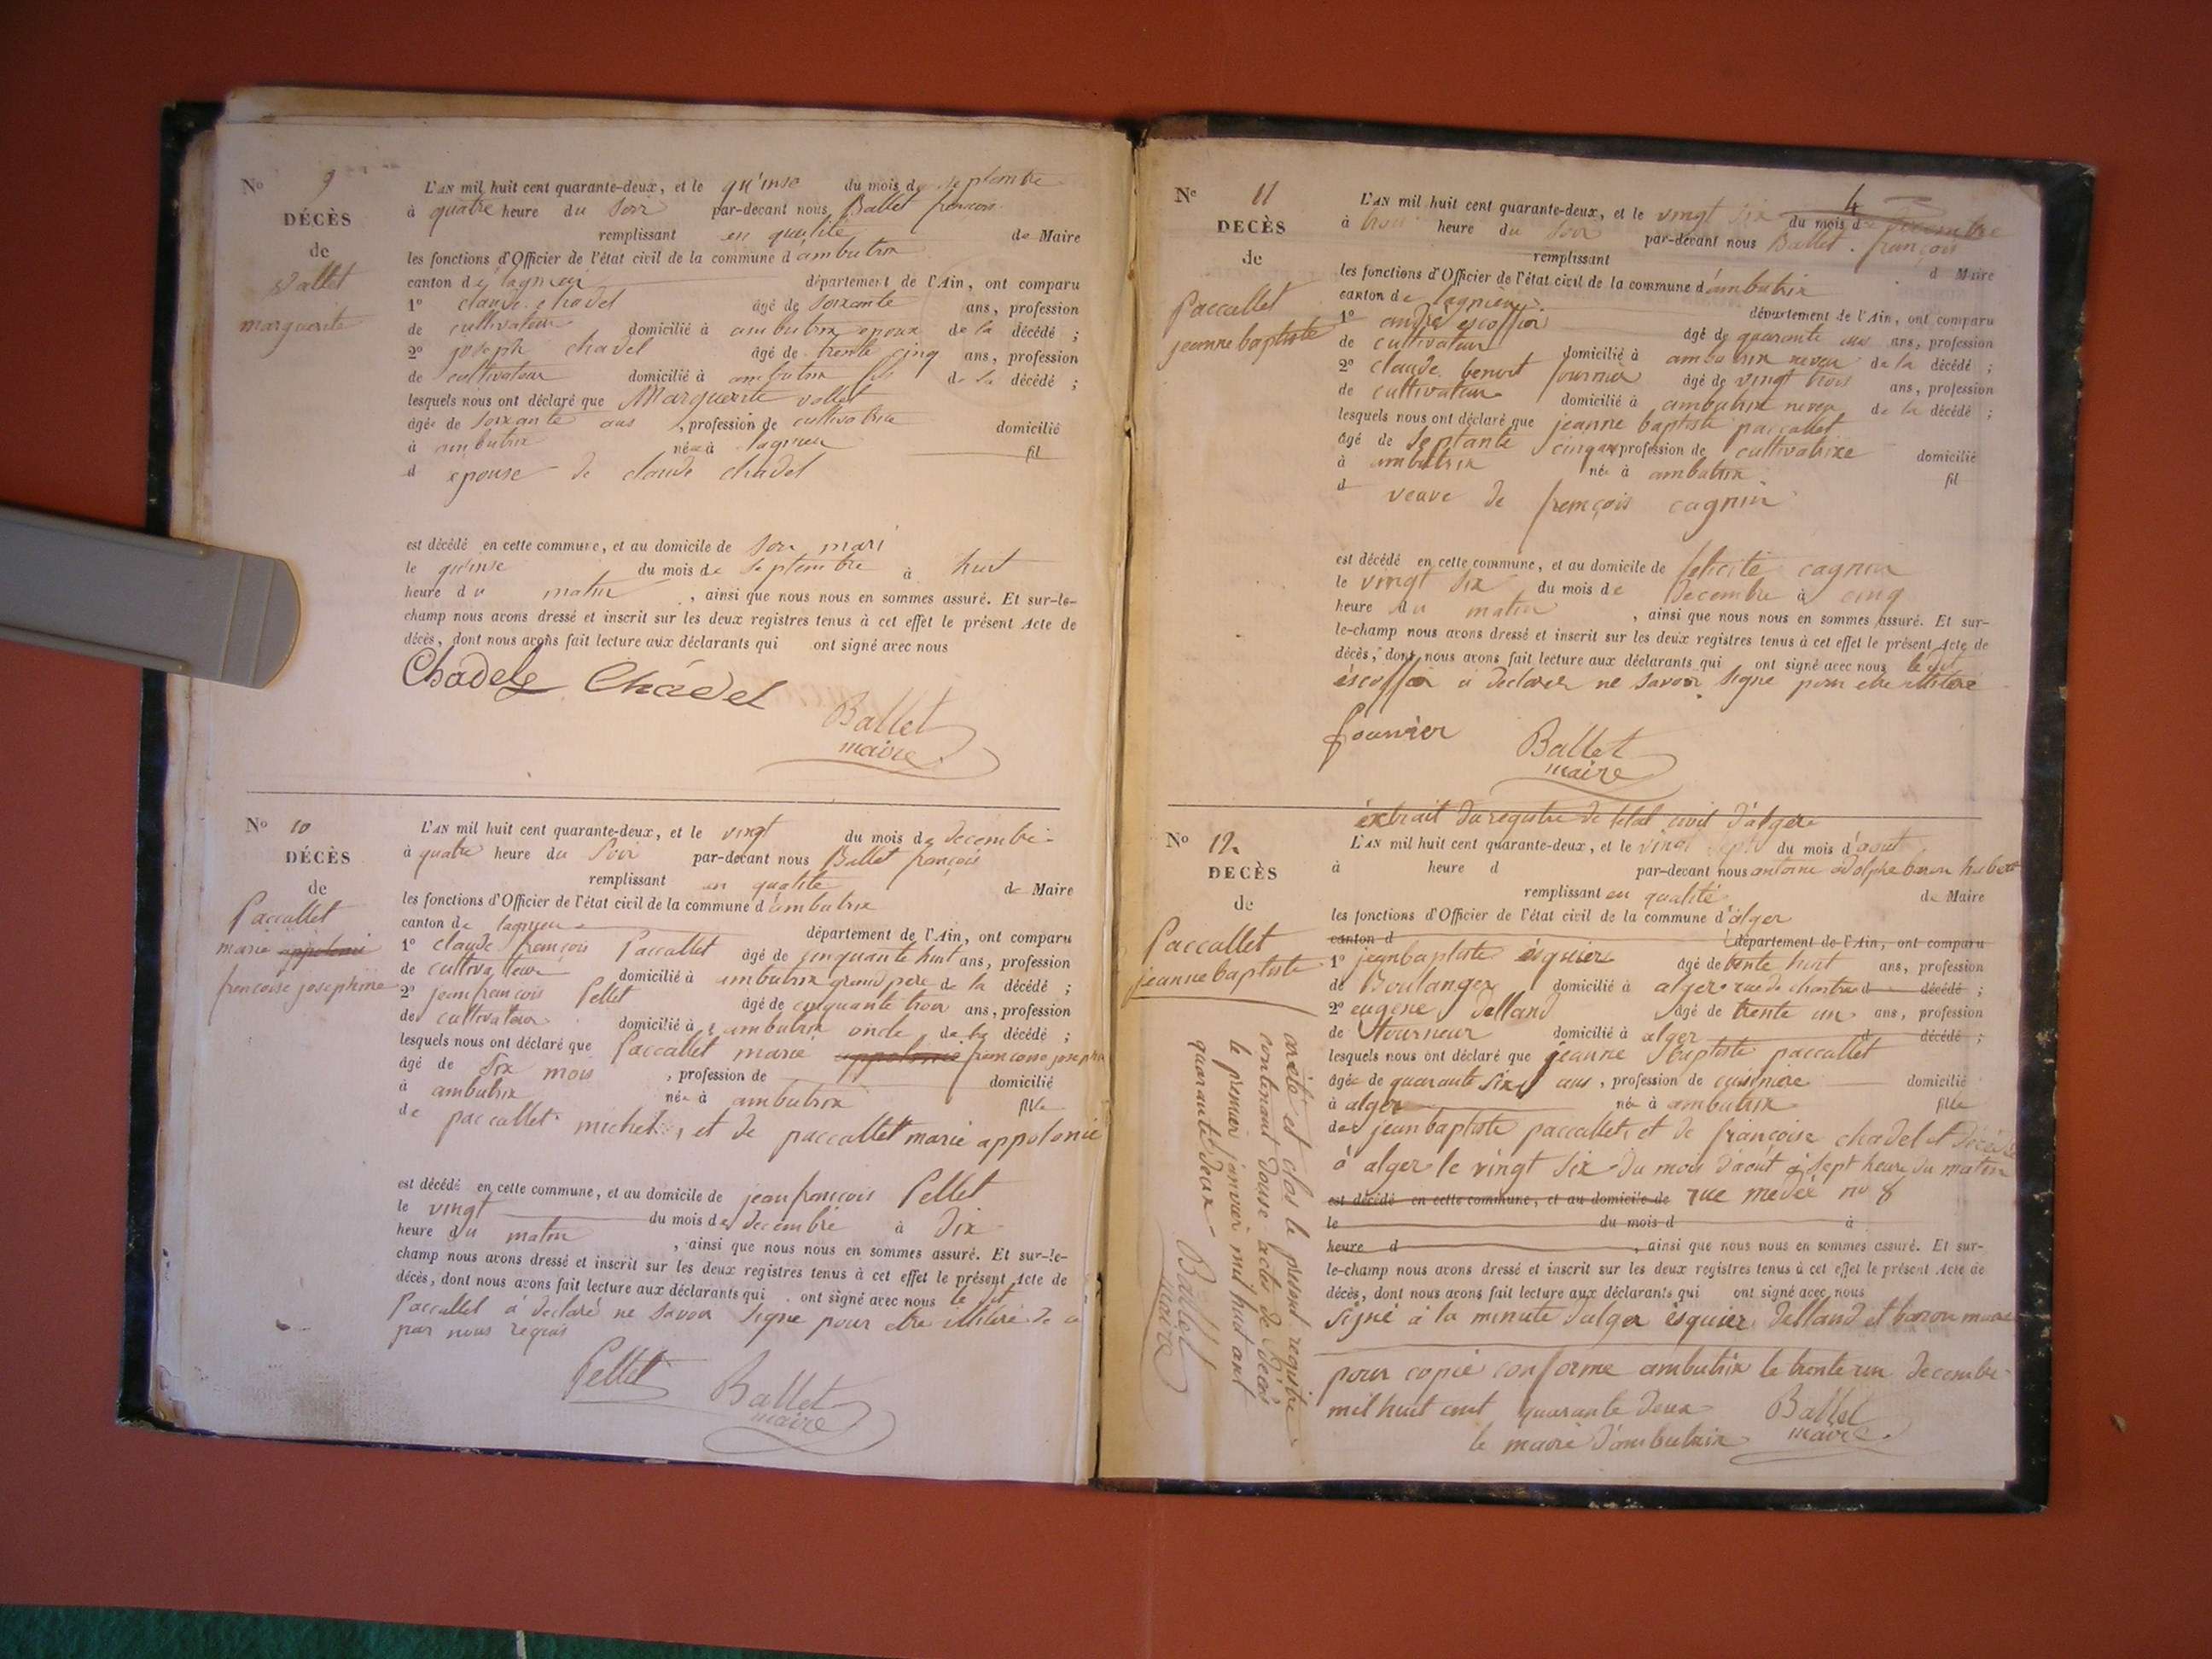 No 9
DÉCÈS
de
Vallet
marguerite
L'AN mil huit cent quarante-deux, et le qu'inse du mois de septembre
à quatre heure du soir par-devant nous Ballet francois
remplissant en qualité de Maire
les fonctions d'Officier de l'état civil de la commune d'ambutrix
canton de lagnieu département de l'Ain, ont comparu
1º claude chadel âgé de soixante ans, profession
de cultivateur domicilié à ambutrix epoux de la décédé ;
2º joseph chadel âgé de trente cinq ans, profession
de cultivateur domicilié à ambutrix fils de la décédé ;
lesquels nous ont déclaré que Marguerite vallet
âgée de soixante ans, profession de cultivatrice domicilié
à ambutrix née à lagnieu fil
d epouse de claude chadel
est décédé en cette commune, et au domicile de son mari
le quinse du mois de septembre à huit
heure du matin, ainsi que nous nous en sommes assuré. Et sur-le-
champ nous avons dressé et inscrit sur les deux registres tenus à cet effet le présent Acte de
décès, dont nous avons fait lecture aux déclarants qui ont signé avec nous
Chadel Chadel
Ballet
maire
No 10
DÉCÈS
de
Paccallet
marie appolonie
francoise josephine
L'AN mil huit cent quarante-deux, et le vingt du mois de decembre
à quatre heure du soir par-devant nous Ballet françois
remplissant en qualité de Maire
les fonctions d'Officier de l'état civil de la commune d'ambutrix
canton de lagnieu département de l'Ain, ont comparu
1º claude françois Paccallet âgé de cinquante huit ans, profession
de cultivateur domicilié à ambutrix grand pere de la décédé ;
2º jean francois Pellet âgé de cinquante trois ans, profession
de cultivateur domicilié à ambutrix oncle de la décédé ;
lesquels nous ont déclaré que Paccallet marie appolonie francoise josephine
âgé de six mois, profession de domicilié
à ambutrix née à ambutrix fille
de paccallet michel, et de paccallet marie appolonie
est décédé en cette commune, et au domicile de jean françois Pellet
le vingt du mois de decembre à dix
heure du matin, ainsi que nous nous en sommes assuré. Et sur-le-
champ nous avons dressé et inscrit sur les deux registres tenus à cet effet le présent Acte de
décès, dont nous avons fait lecture aux déclarants qui ont signé avec nous le dit
Paccallet a déclaré ne savoir signe pour etre illitéré de ce
par nous requis
Pellet Ballet
maire
4
No 11
DECÈS
de
Paccallet
jeanne baptiste
L'AN mil huit cent quarante-deux, et le vingt six du mois de decembre
à trois heure du soir par-devant nous Ballet françois
remplissant d Maire
les fonctions d'Officier de l'état civil de la commune d'ambutrix
canton de lagnieu département de l'Ain, ont comparu
1º andré escoffier âgé de quarante ans, profession
de cultivateur domicilié à ambutrix neveu de la décédé ;
2º claude benoit fournier âgé de vingt trois ans, profession
de cultivateur domicilié à ambutrix neveu de la décédé ;
lesquels nous ont déclaré que jeanne baptiste paccallet
âgé de septante cinq ans profession de cultivatrixe domicilié
à ambutrix née à ambutrix fil
d veuve de françois cagnin
est décédé en cette commune, et au domicile de felicité cagnin
le vingt six du mois de decembre à cinq
heure du matin, ainsi que nous nous en sommes assuré. Et sur-
le-champ nous avons dressé et inscrit sur les deux registres tenus à cet effet le présent Acte de
décès, dont nous avons fait lecture aux déclarants qui ont signé avec nous le dit
éscoffier a declarer ne savoir signe pour etre illitéré
fournier Ballet
maire
éxtrait du registre de létat civil d'alger
No 12
DECÈS
de
Paccallet
jeanne baptiste
L'AN mil huit cent quarante-deux, et le vingt sept du mois d'aout
à heure d par-devant nous antoine adolphe baron
remplissant en qualité de Maire
les fonctions d'Officier de l'état civil de la commune d'alger
canton d département de l'Ain, ont comparu
1º jean baptiste ésquier âgé de trente huit ans, profession
de Boulanger domicilié à alger rue de chartres d décédé ;
2º eugene delland âgé de trente un ans, profession
de tourneur domicilié à alger d décédé ;
lesquels nous ont déclaré que jeanne baptiste paccallet
âgée de quarante six ans, profession de cuisiniere domicilié
à alger née à ambutrix fille
de jean baptiste paccallet et de françoise chadel et décédé
à alger le vingt six du mois d'aout à sept heure du matin
est décédé en cette commune, et au domicile de rue medée no 8
le du mois d à
heure d, ainsi que nous nous en sommes assuré. Et sur-
le-champ nous avons dressé et inscrit sur les deux registres tenus à cet effet le présent Acte de
décès, dont nous avons fait lecture aux déclarants qui ont signé avec nous
signé à la minute d'alger ésquier delland et baron maire
pour copie conforme ambutrix le trente un decembre
mil huit cent quarante deux Ballet
le maire d'ambutrix maire
arrêté et clos le présent registre
contenant douse actes de décès
le premier janvier mil huit cent
quarante deux
Ballet
maire